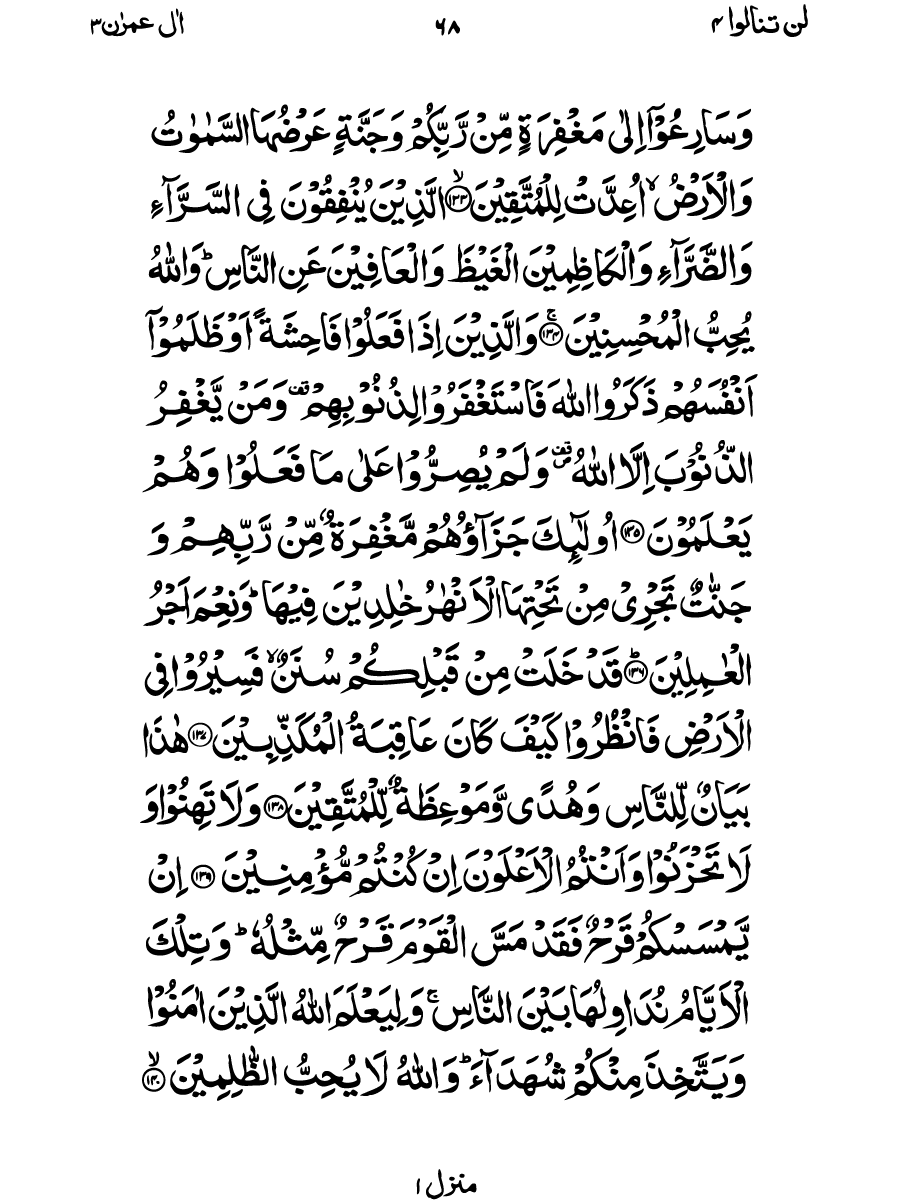 لن تنالوا ۴ ۶۸ اٰل عمرٰن ۳
وَسَارِعُوْۤا اِلٰى مَغْفِرَةٍ مِّنْ رَّبِّكُمْ وَجَنَّةٍ عَرْضُهَا السَّمٰوٰتُ
وَالْاَرْضُ ۙ اُعِدَّتْ لِلْمُتَّقِيْنَ ۙ﴿۱۳۳﴾ الَّذِيْنَ يُنْفِقُوْنَ فِى السَّرَّآءِ
وَالضَّرَّآءِ وَالْكَاظِمِيْنَ الْغَيْظَ وَالْعَافِيْنَ عَنِ النَّاسِ ؕ وَاللّٰهُ
يُحِبُّ الْمُحْسِنِيْنَ ۚ﴿۱۳۴﴾ وَالَّذِيْنَ اِذَا فَعَلُوْا فَاحِشَةً اَوْ ظَلَمُوْۤا
اَنْفُسَهُمْ ذَكَرُوا اللّٰهَ فَاسْتَغْفَرُوْا لِذُنُوْبِهِمْ ۪ وَمَنْ يَّغْفِرُ
الذُّنُوْبَ اِلَّا اللّٰهُ ۪ۗ وَلَمْ يُصِرُّوْا عَلٰى مَا فَعَلُوْا وَهُمْ
يَعْلَمُوْنَ ﴿۱۳۵﴾ اُولٰٓئِكَ جَزَآؤُهُمْ مَّغْفِرَةٌ مِّنْ رَّبِّهِمْ وَ
جَنّٰتٌ تَجْرِىْ مِنْ تَحْتِهَا الْاَنْهٰرُ خٰلِدِيْنَ فِيْهَا ؕ وَنِعْمَ اَجْرُ
الْعٰمِلِيْنَ ؕ﴿۱۳۶﴾ قَدْ خَلَتْ مِنْ قَبْلِكُمْ سُنَنٌ ۙ فَسِيْرُوْا فِى
الْاَرْضِ فَانْظُرُوْا كَيْفَ كَانَ عَاقِبَةُ الْمُكَذِّبِيْنَ ﴿۱۳۷﴾ هٰذَا
بَيَانٌ لِّلنَّاسِ وَهُدًى وَّمَوْعِظَةٌ لِّلْمُتَّقِيْنَ ﴿۱۳۸﴾ وَلَا تَهِنُوْا وَ
لَا تَحْزَنُوْا وَاَنْتُمُ الْاَعْلَوْنَ اِنْ كُنْتُمْ مُّؤْمِنِيْنَ ﴿۱۳۹﴾ اِنْ
يَّمْسَسْكُمْ قَرْحٌ فَقَدْ مَسَّ الْقَوْمَ قَرْحٌ مِّثْلُهٗ ؕ وَتِلْكَ
الْاَيَّامُ نُدَاوِلُهَا بَيْنَ النَّاسِ ۚ وَلِيَعْلَمَ اللّٰهُ الَّذِيْنَ اٰمَنُوْا
وَيَتَّخِذَ مِنْكُمْ شُهَدَآءَ ؕ وَاللّٰهُ لَا يُحِبُّ الظّٰلِمِيْنَ ۙ﴿۱۴۰﴾
منزل ۱